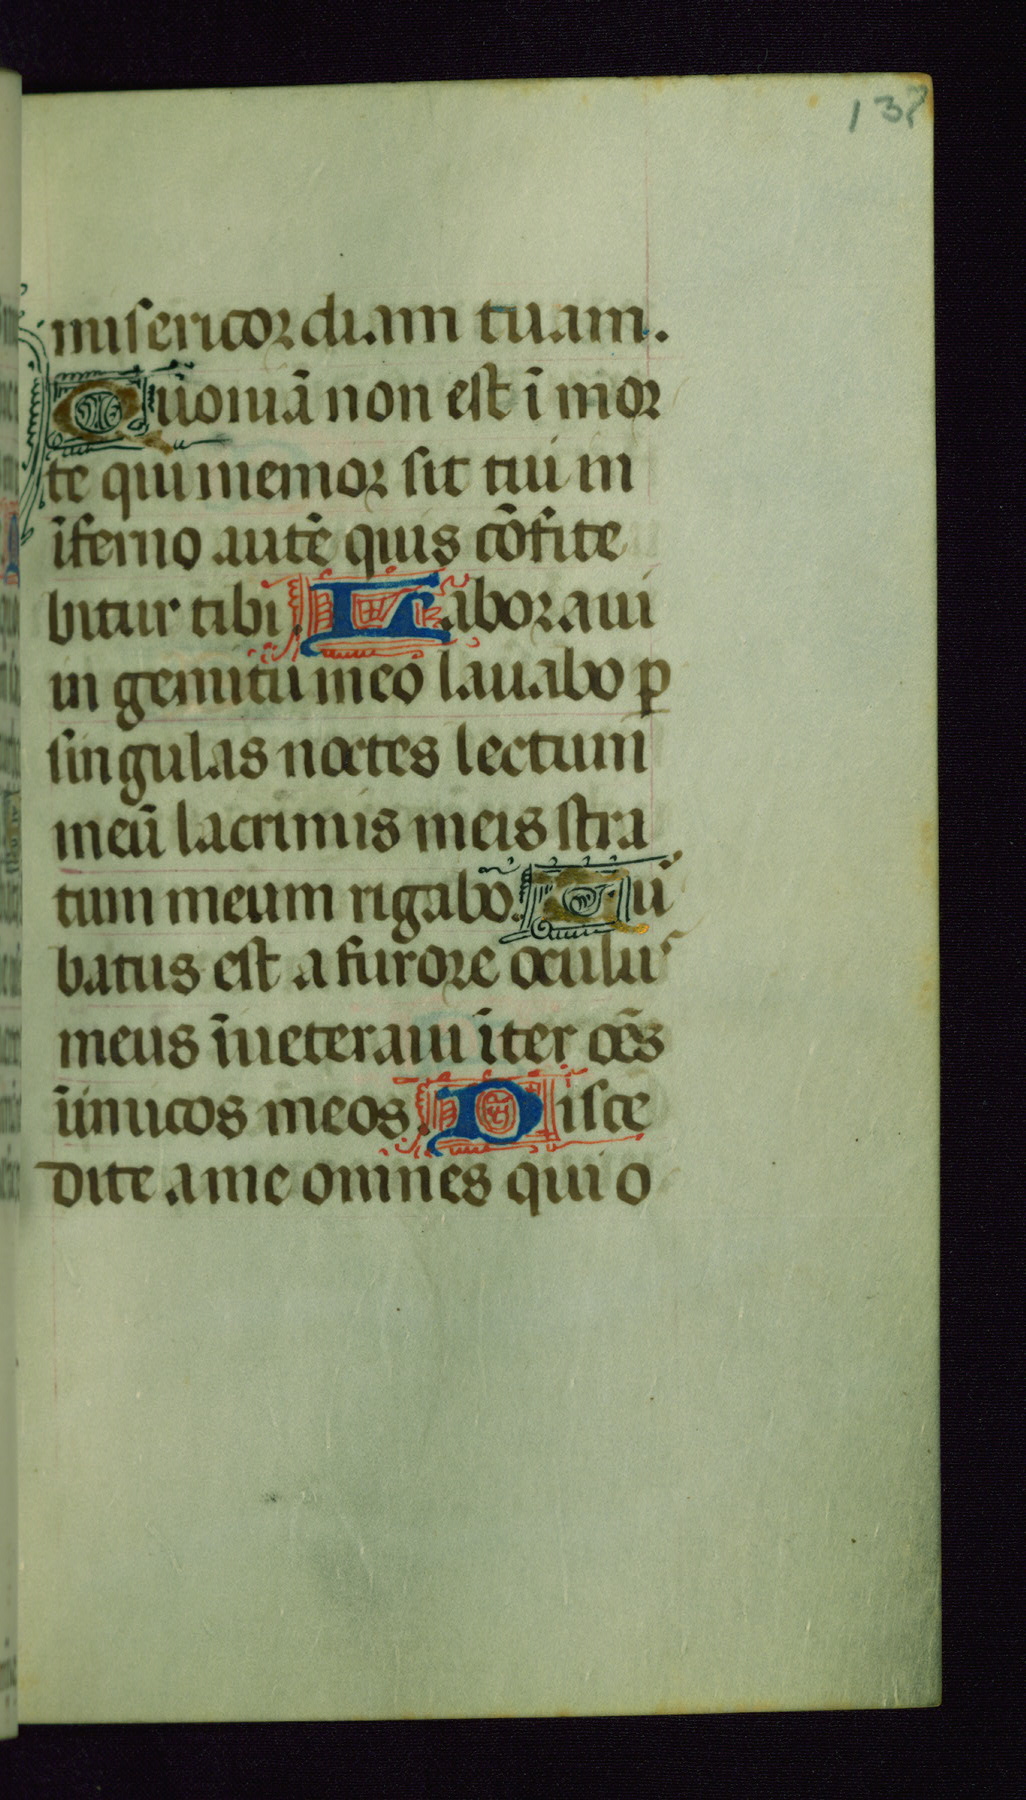 137
misericordiam tuam.
Quoniā non est ī mor
te qui memor sit tui in
īferno autē quis cōfite
bitur tibi. Laboraui
in gemitu meo lauabo p
singulas noctes lectum
meū lacrimis meis stra
tum meum rigabo. Tu
batus est a furore oculus
meus īueteraui īter oēs
īimicos meos. Disce
dite a me omnes qui o